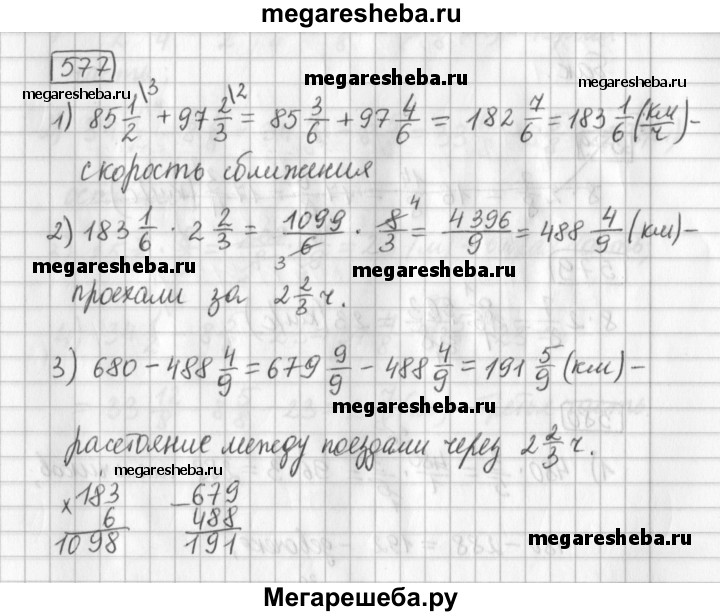 megaresheba.ru
577
megaresheba.ru megaresheba.ru
1) 85 1/2 \3 + 97 2/3 \2 = 85 3/6 + 97 4/6 = 182 7/6 = 183 1/6 (км/ч) –
скорость сближения
2) 183 1/6 · 2 2/3 = 1099/6 3 · 8 4/3 = 4396/9 = 488 4/9 (км) –
megaresheba.ru megaresheba.ru
проехали за 2 2/3 ч.
3) 680 – 488 4/9 = 679 9/9 – 488 4/9 = 191 5/9 (км) –
megaresheba.ru
расстояние между поездами через 2 2/3 ч.
megaresheba.ru
× 183 – 679
6 488
1098 191
megaresheba.ru
Мегарешеба.ру